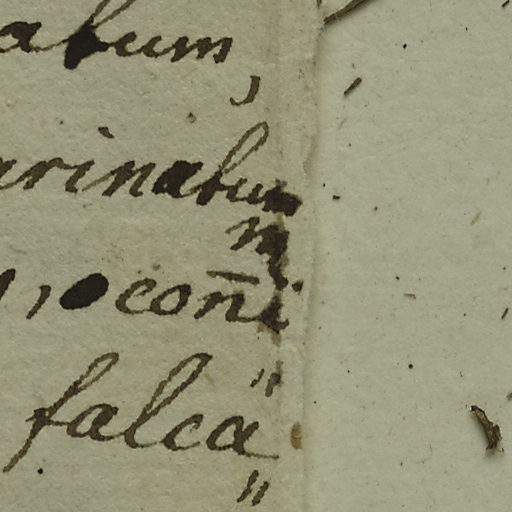 atum,
arinatum
m
, oconi
"
falca
"